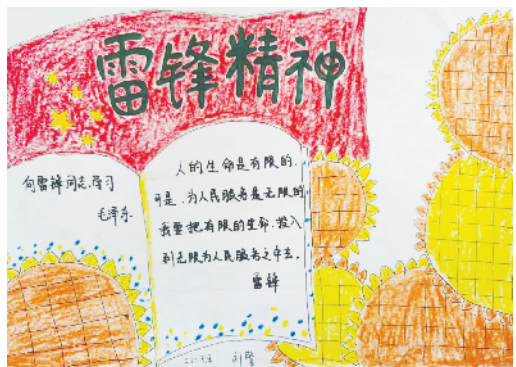 雷锋精神
向雷锋同志学习
毛泽东
人的生命是有限的.
可是,为人民服务是无限的
我要把有限的生命,投入
到无限为人民服务之中去.
雷锋